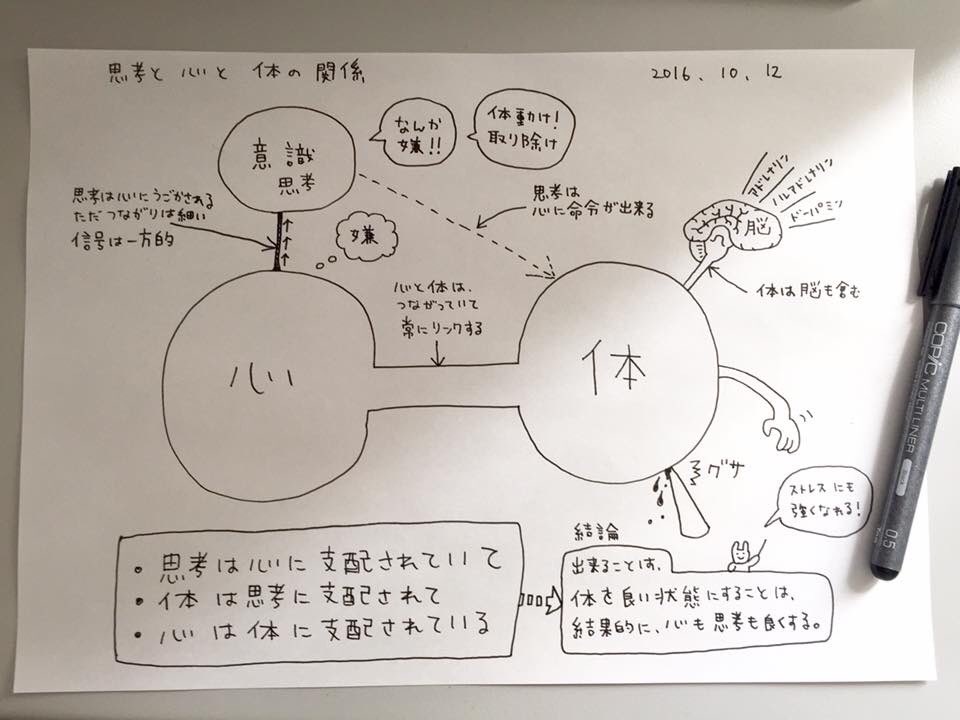 思考と 心と 体の 関係
2016. 10. 12
意識
思考
なんか
嫌!!
体動け!
取り除け
思考は心にうごかされる
ただつながりは細い
信号は一方的
嫌
思考は
心に命令が出来る
アドレナリン
ノルアドレナリン
ドーパミン
脳
体は脳も含む
心と体は、
つながっていて
常にリンクする
心
体
グサ
ストレスにも
強くなれる!
・思考は心に支配されていて
・体は思考に支配されて
・心は体に支配されている
結論
出来ることは、
体を良い状態にすることは、
結果的に、心も思考も良くする。
COPIC
MULTI LINER
0.5